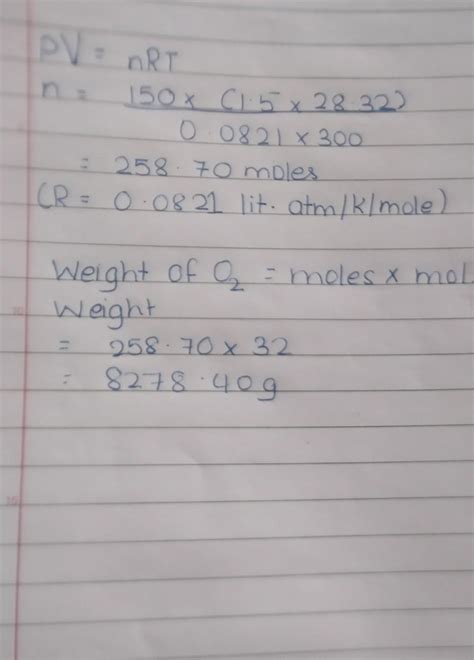 PV = nRT
n = 150 x (1.5 x 28.32)
0.0821 x 300
= 258.70 moles
(R = 0.0821 lit. atm/k/mole)
Weight of O2 = moles x mol.
Weight
= 258.70 x 32
= 8278.40g